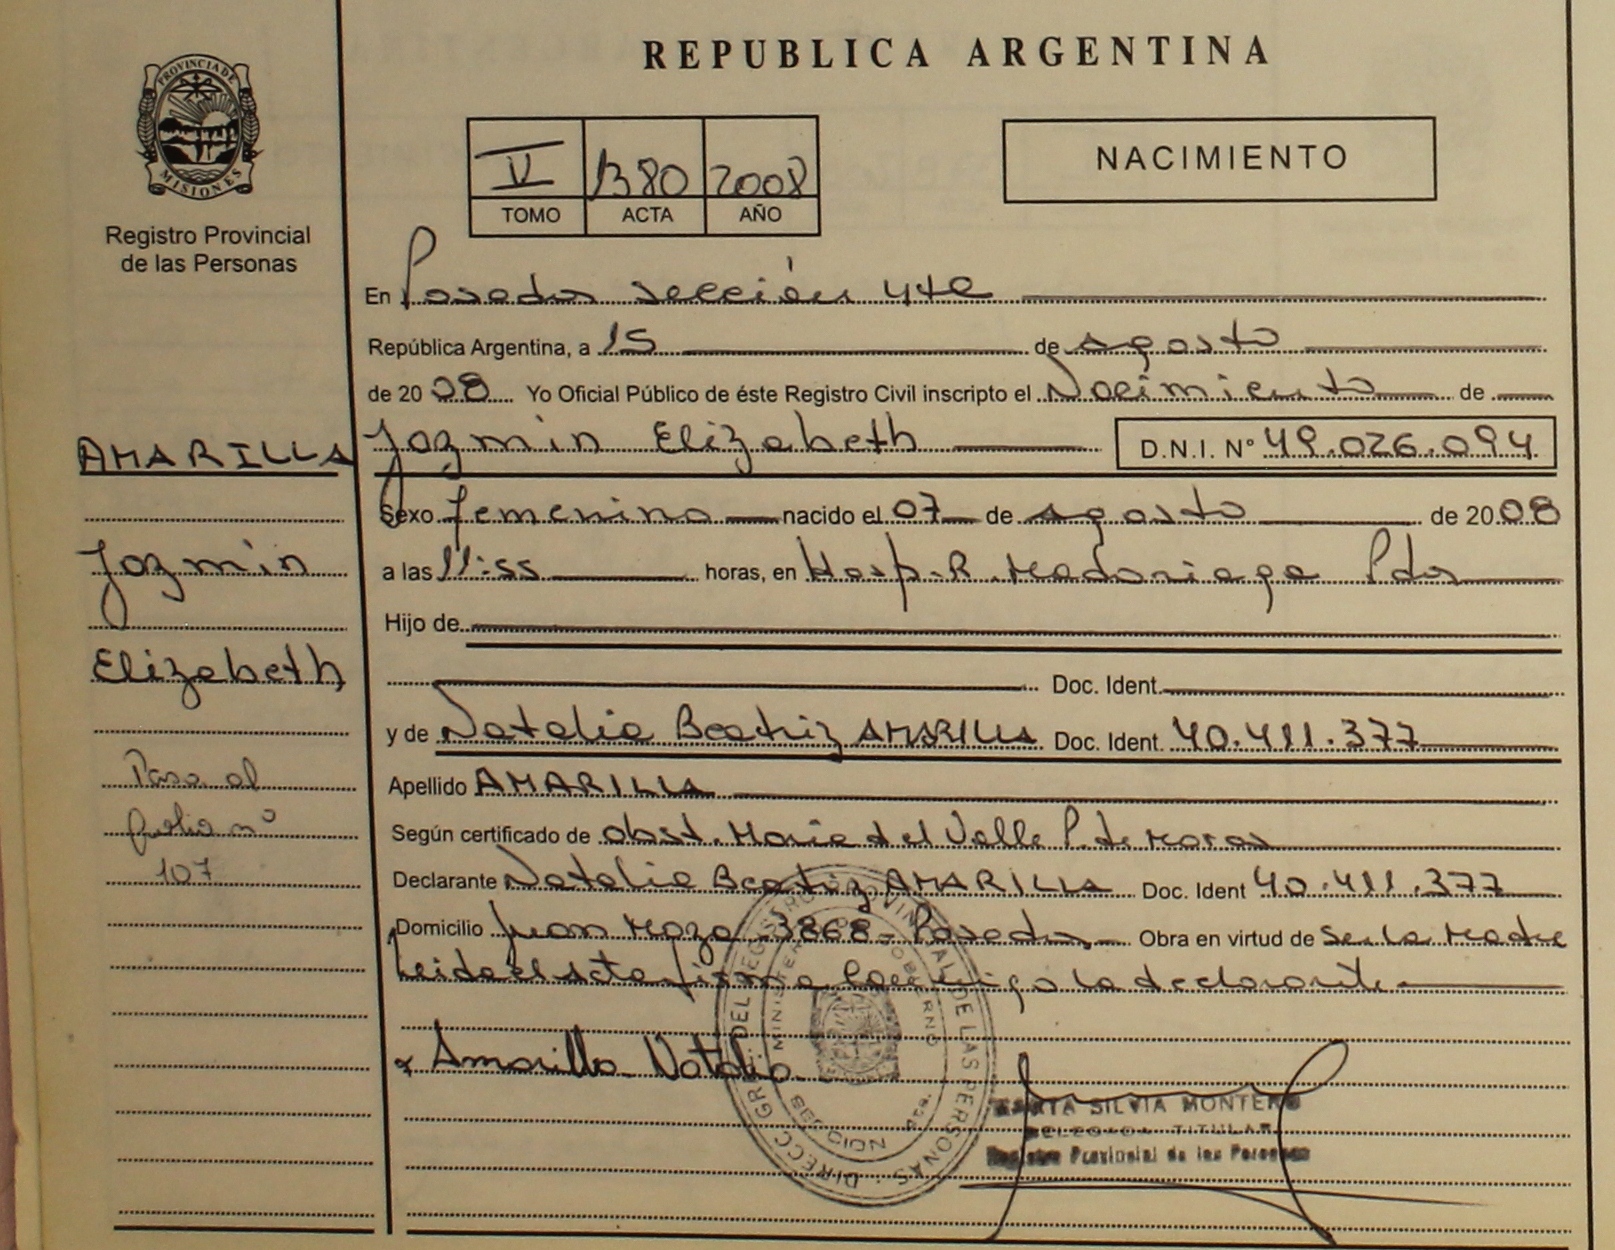 REPUBLICA ARGENTINA
PROVINCIA DE
MISIONES
Registro Provincial
de las Personas
II 1380 2008
TOMO ACTA AÑO
NACIMIENTO
En Posadas sección 4ta
República Argentina, a 15 de agosto
de 2008 Yo Oficial Público de éste Registro Civil inscripto el Nacimiento de
AMARILLA Jazmin Elizabeth D.N.I. Nº 49.026.094
Sexo femenino nacido el 07 de agosto de 2008
Jazmin a las 11:55 horas, en Hosp. R. Madariaga Pdas
Hijo de
Elizabeth
Doc. Ident.
y de Natalia Beatriz AMARILLA Doc. Ident. 40.411.377
Pasa al
folio nº
107
Apellido AMARILLA
Según certificado de obst. Maria del Valle P. de Moras
Declarante Natalia Beatriz AMARILLA Doc. Ident 40.411.377
Domicilio Juan Maza 3868 - Posadas Obra en virtud de Ser la Madre
leida el acta firma conmigo la declarante
Amarilla Natalia
MARTA SILVIA MONTERO
DELEGADA TITULAR
Registro Provincial de las Personas